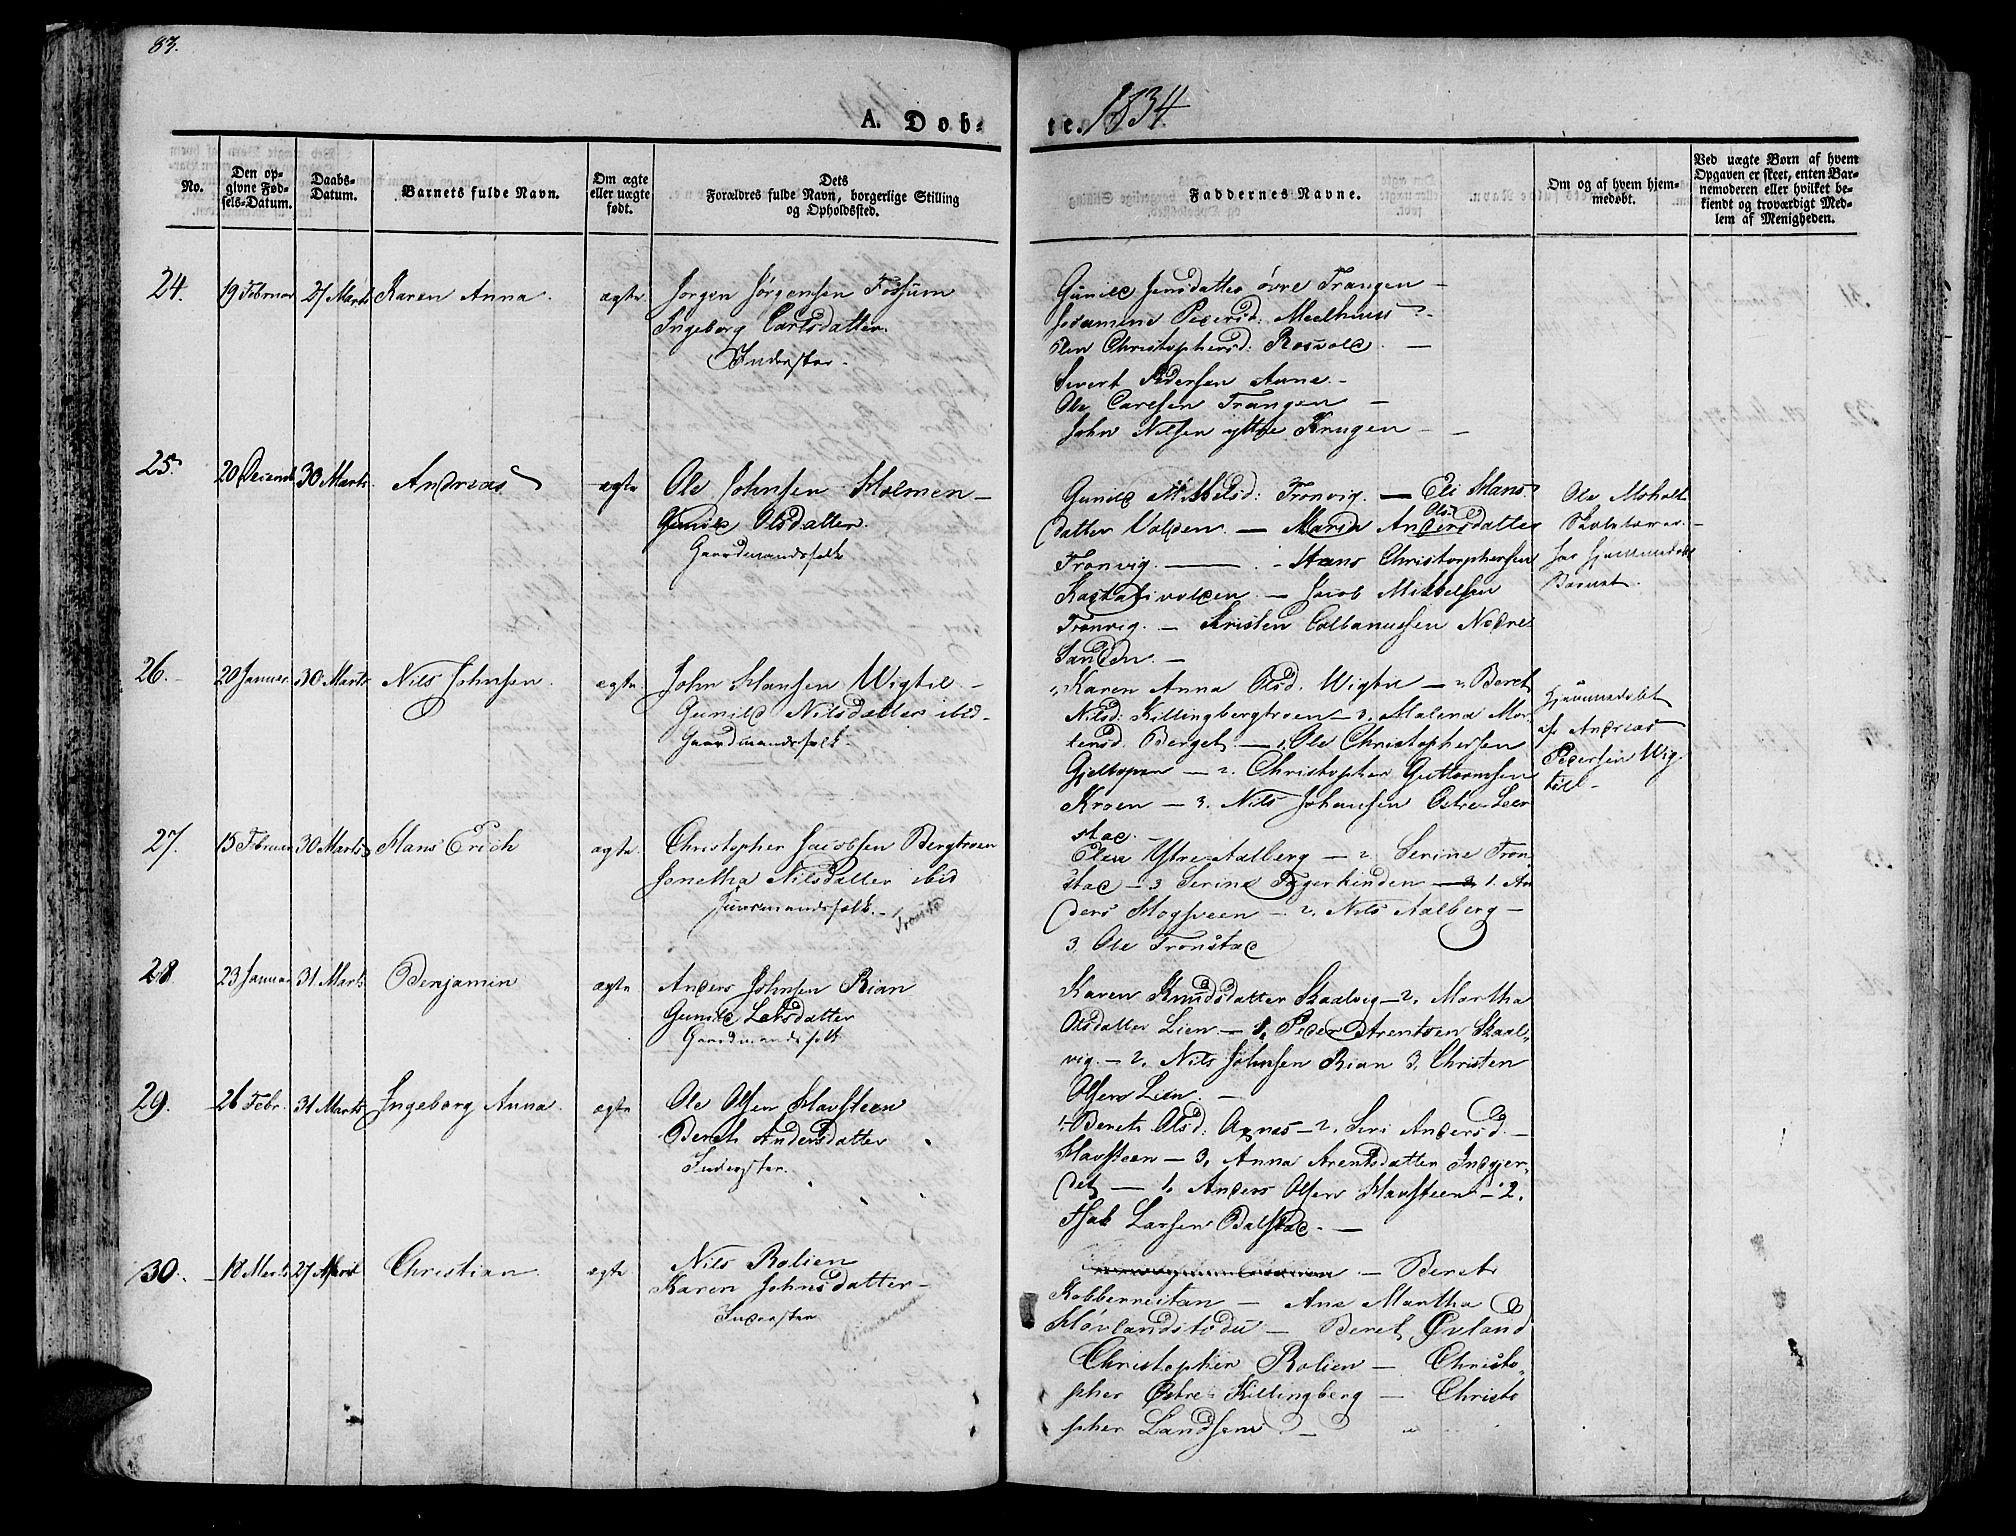 83.
A. Døb-
te. 1834
No.
Den op-
givne Fød-
sels-Datum.
Daabs-
Datum.
Barnets fulde Navn.
Om ægte
eller uægte
født.
Dets
Forældres fulde Navn, borgerlige Stilling
og Opholdssted.
Faddernes Navne.
Om og af hvem hjem-
medøbt.
Ved uægte Børn af hvem
Opgaven er skeet, enten Bar-
nemoderen eller hvilket be-
kiendt og troværdigt Med-
lem af Menigheden.
24. 19 Februar 27 Marts Karen Anna. ægte Jørgen Jørgensen Fossum
Ingeborg Carlsdatter.
Inderster.
Gunild Jensdatter øvre Trangen —
Pedersd: Meelhuus —
Christophersd: Rosvold —
Sivert Pedersen Aune —
Ole Carlsen Trangen —
John Nilsen yttre Krugen —
25. 20 Decemb 30 Marts. Andreas ægte Ole Johnsen Holmen —
Gunild Olsdatter.
Gaardmandsfolk
Gunild Mikkelsd: Tronvig. — Eli Hans
datter Volden. — Maria Andersdatter
Ols
Tronvig. — Hans Christophersen
— Jacob Mikkelsen
Tronvig. — Kristen Colbanussen Nedre
Sanden. —
Ole Moholt
Skolelærer
har hjemmedøbt
Barnet.
26. 20 Januar 30 Marts Nils Johnsen. ægte John Hansen Wigtil —
Gunild Nilsdatter ibid —
Gaardmandsfolk.
1. Karen Anna Olsd. Wigtil — 2. Beret
Nilsd: Killingbergtroen — 3. Malena Mor-
tensd. Berget — 1. Ole Christophersen
Gjeltopen — 2. Christopher Guttormsen
Kroen — 3. Nils Johansen Østre Leer
stad. —
Hjemmedøbt
af Andreas
Pedersen Wig-
til —
27. 15 Februar 30 Marts Hans Erich ægte Christopher Jacobsen Bergtroen
Jonetha Nilsdatter ibid
Huusmandsfolk. —
Elen Ytre Aalberg — 2. Serine Tron-
stad — 3 Serina Fagerlinden — 1. An
ders Hogsveen — 2. Nils Aalberg —
3. Ole Tronstad
28 23 Januar 31 Marts Benjamin ægte Anders Johnsen Rian
Gunild Larsdatter
Gaardmandsfolk
Karen Knudsdatter Skaalvig — 2. Martha
Olsdatter Lien. — 1. Peder Arentsen Skaal-
vig. — 2. Nils Johnsen Rian 3. Christen
Olsen Lien. —
29. 26 Febr. 31 Marts Ingeborg Anna. ægte Ole Olsen Havsteen
Beret Andersdatter
Inderster.
1. Beret Olsd. Agnes — 2. Siri Andersd. —
Havsteen — 3. Anna Arentsdatter Indgjer-
det — 1. Anders Olsen Havsteen — 2.
Isak Larsen Balstad. —
30. 18 Marts 27 April Christian. ægte Nils Rolien
Karen Johnsdatter —
Inderster
— Beret
Kobberreitan — Ana Martha
Høvlandstødu — Beret Øvland
Christopher Rolien — Christo-
pher Østre Killingberg — Christo
pher Landsem —